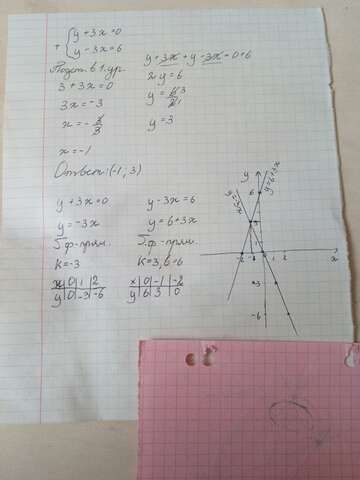 { y + 3x = 0
+ { y - 3x = 6
y + 3x + y - 3x = 0 + 6
Подст. в 1. ур.
2y = 6
3 + 3x = 0
y = 6/2
3
1
3x = -3
x = -3/3
y = 3
x = -1
Ответ: (-1; 3)
y + 3x = 0
y - 3x = 6
y = -3x
y = 6 + 3x
Г. ф - прям.
Г. ф - прям.
K = -3
K = 3, b = 6
x | 0 | 1 | 2
y | 0 | -3 | -6
x | 0 | -1 | -2
y | 6 | 3 | 0
y
y = -3x
y = 6 + 3x
6
-2 -1 1 2
x
-3
-6